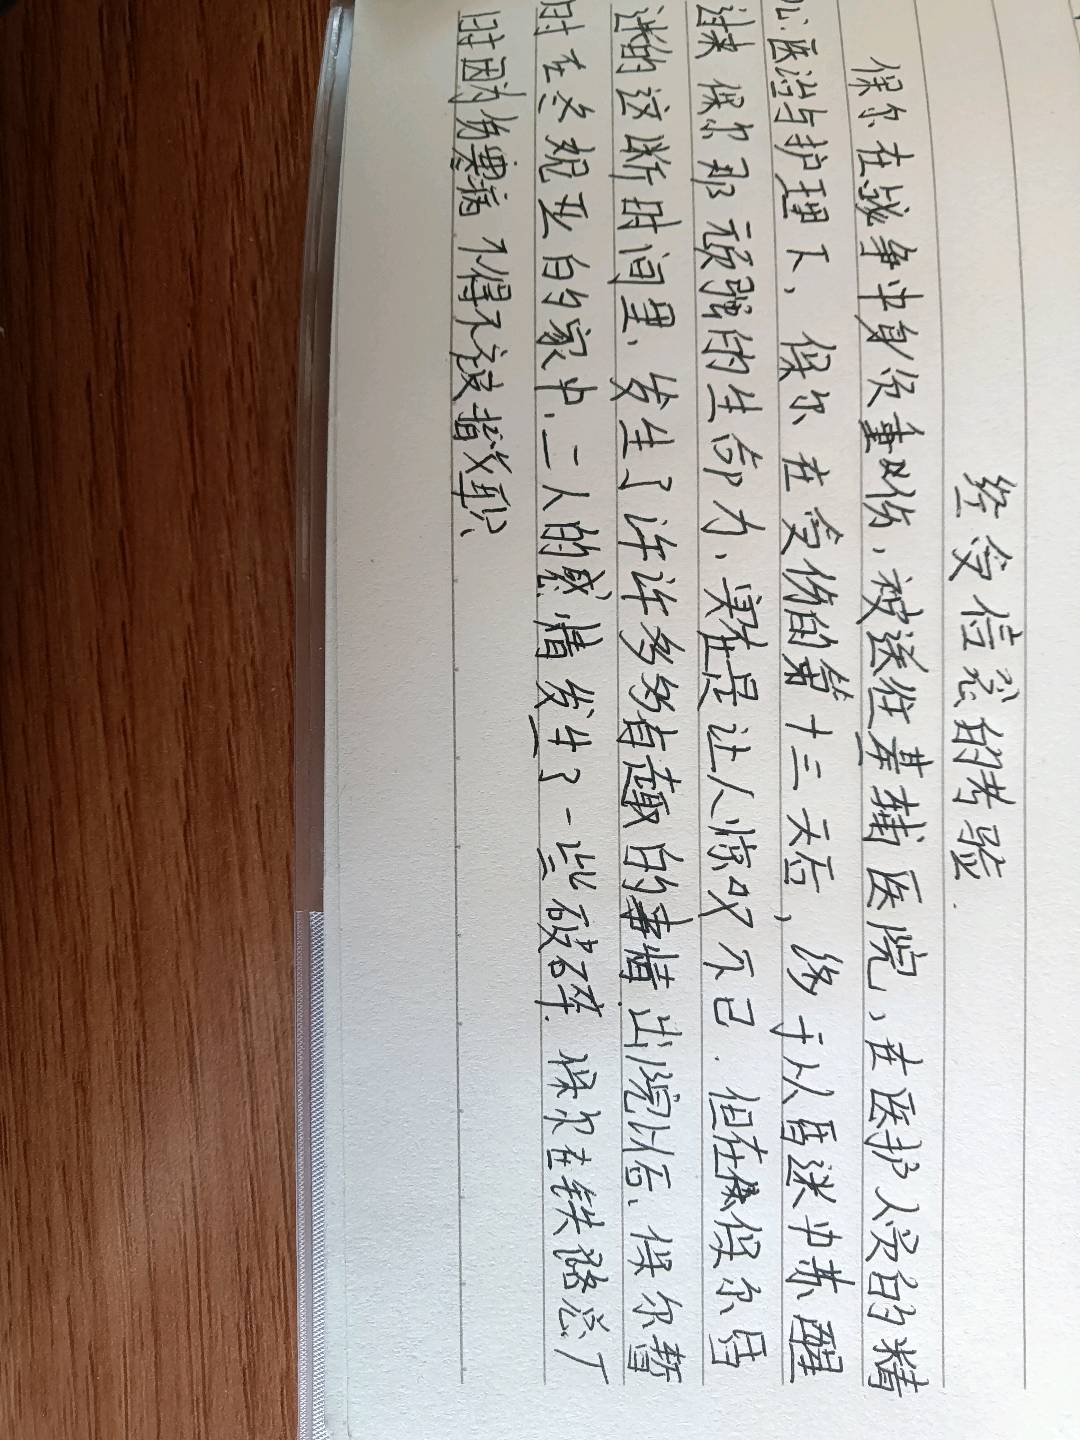 经受信念的考验.
保尔在战争中身负重伤,被送往基辅医院,在医护人员的精
心医治与护理下、保尔在受伤的第十三天后,终于从昏迷中苏醒
过来 保尔那顽强的生命力、实在是让人惊叹不已.但在保尔昏
迷的这断时间里、发生了许许多多有趣的事情.出院以后、保尔暂
时在冬妮亚的家中、二人的感情发生了一些破碎.保尔在铁路总厂
时因为伤寒病不得不被措职、